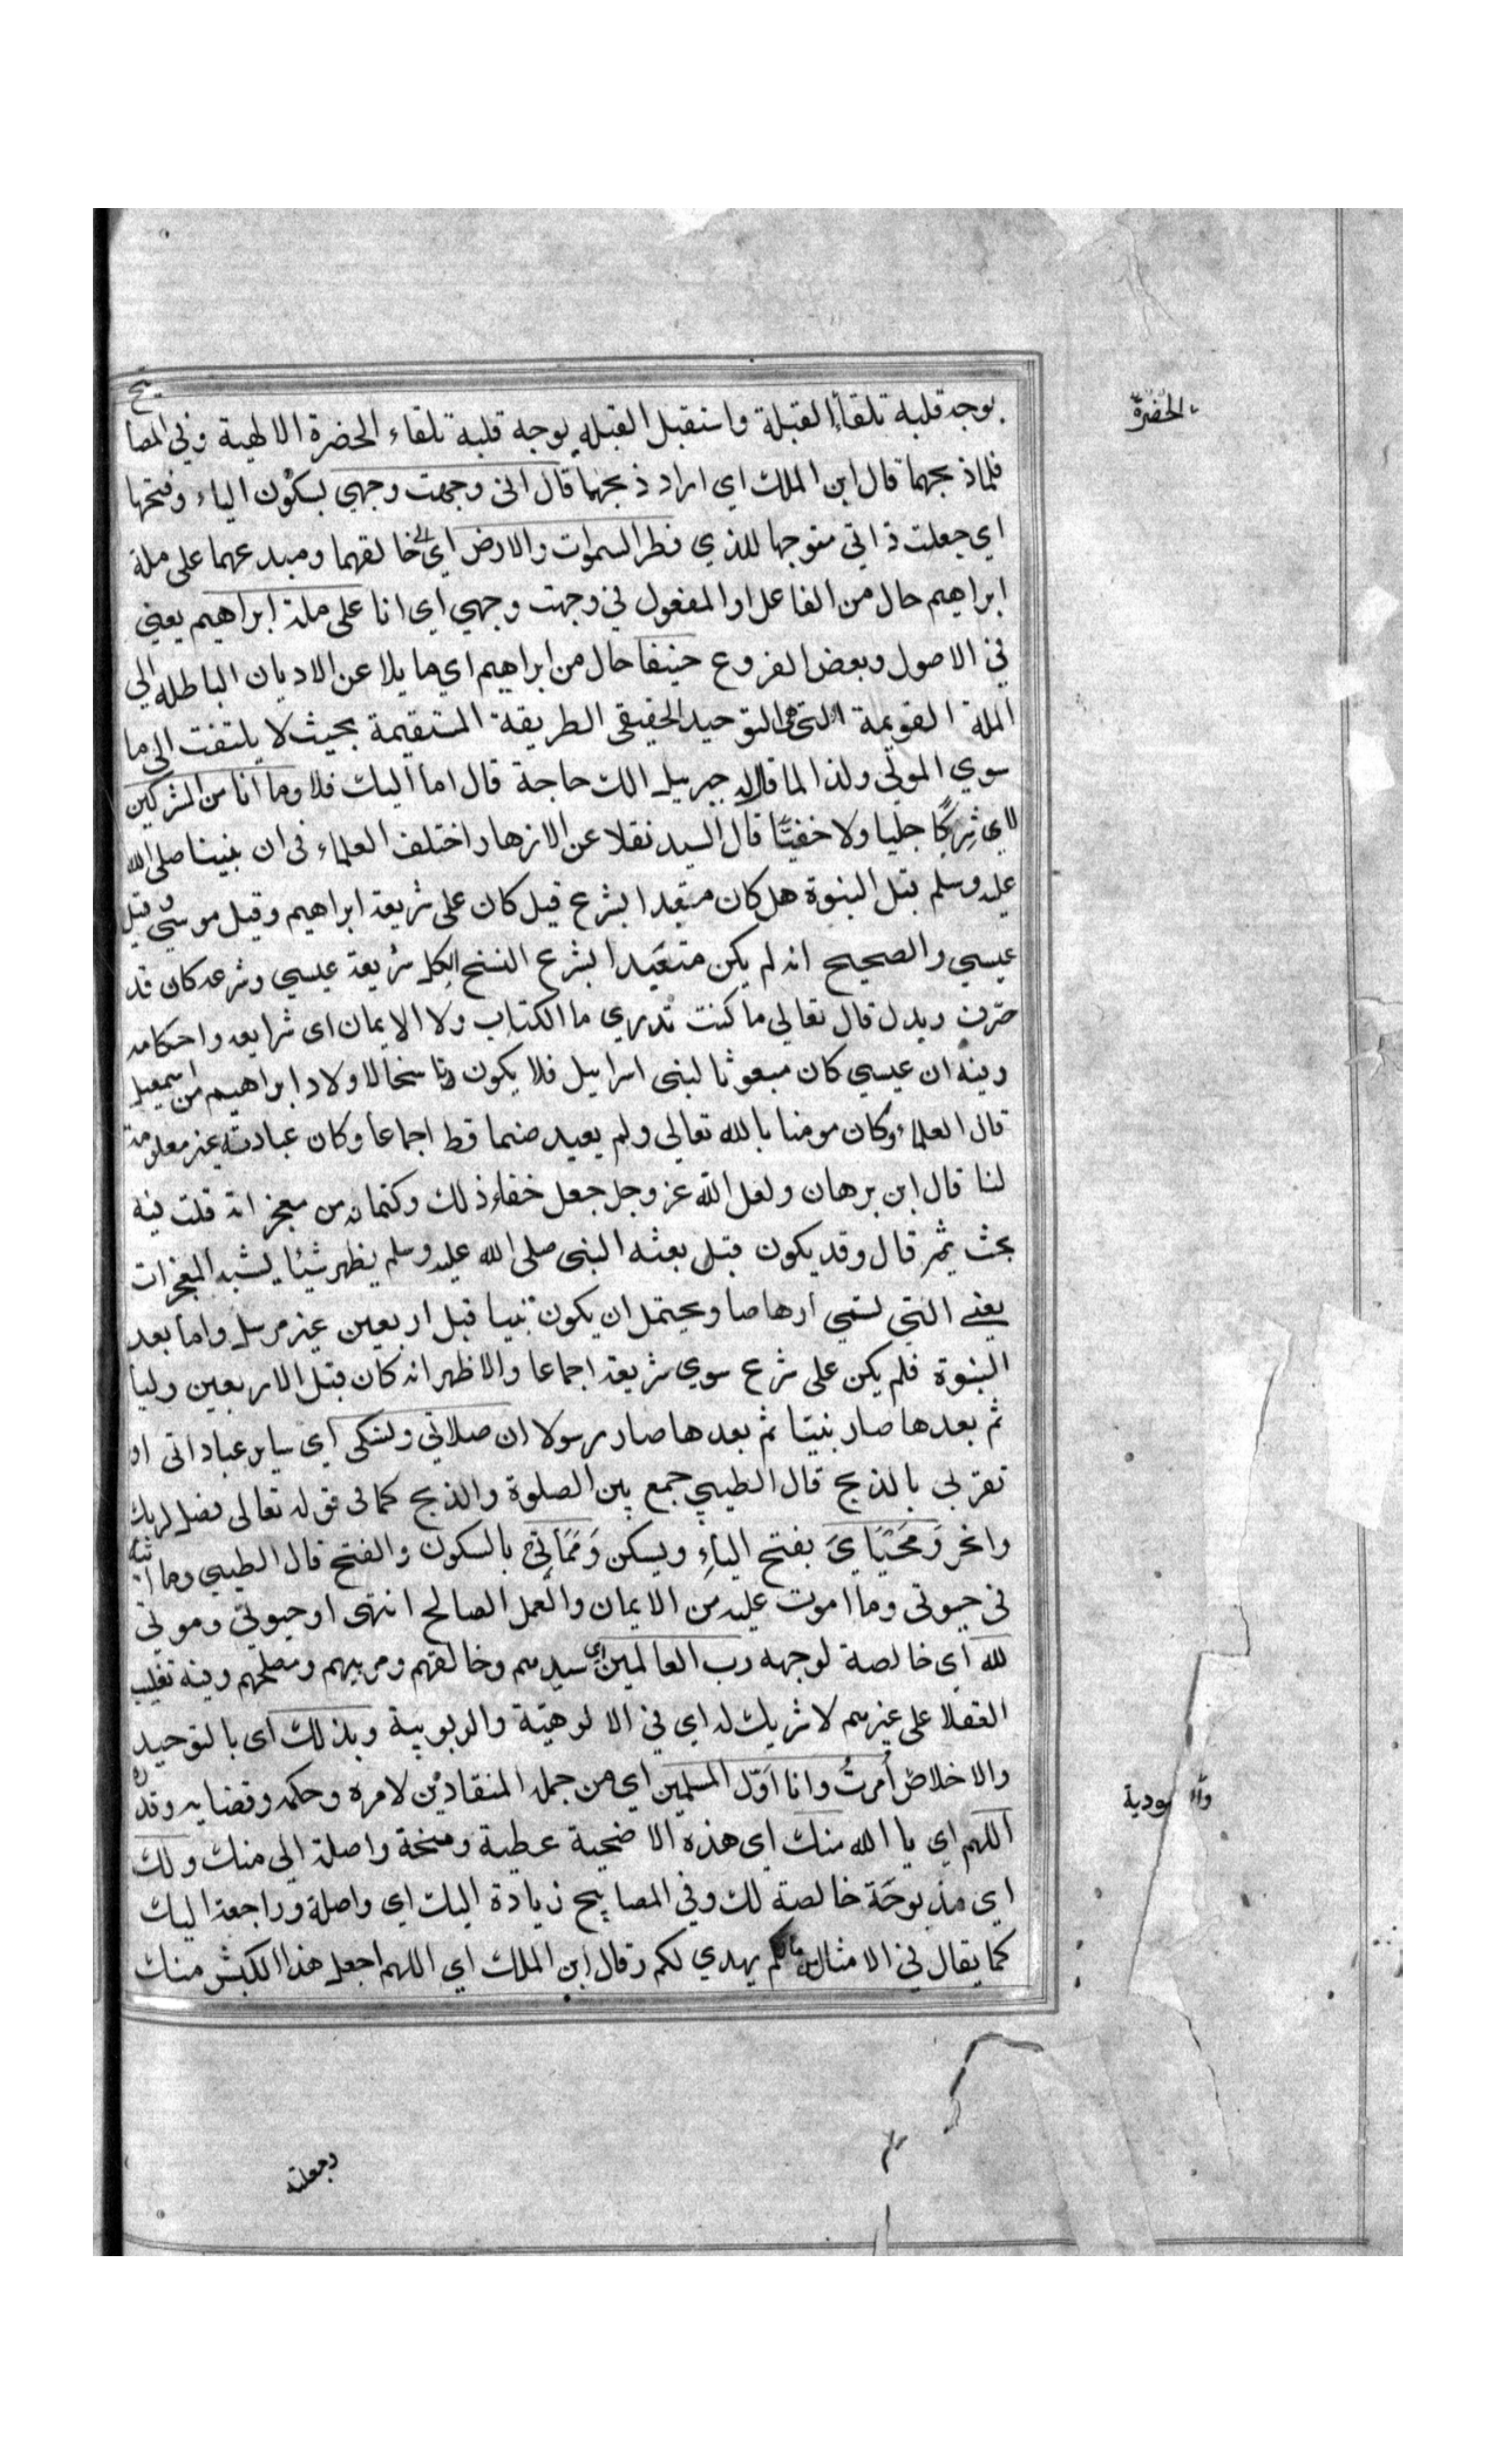 يوجه قلبه تلقاء القبلة واستقبل القبله يوجه قلبه تلقاء الحضرة الالهية وفي المصابيح
فلما ذبحهما قال ابن الملك اي اراد ذبحهما قال اني وجهت وجهي بسكون الياء وفتحها
اي جعلت ذاتي متوجها للذي فطر السموات والارض اي الى خالقهما ومبدعهما على ملة
ابراهيم حال من الفاعل او المفعول في وجهت وجهي اي انا على ملة ابراهيم يعني
في الاصول وبعض الفروع حنيفا حال من ابراهيم اي مايلا عن الاديان الباطله الي
الملة القويمة التي هي التوحيد الحقيقي الطريقة المستقيمة بحيث لا يلتفت الى ما
سوي المولي ولذا لما قال له جبريل الك حاجة قال اما اليك فلا وما انا من المشركين
لاي شركًا جليا ولا خفيًّا قال السيد نقلا عن الازهار اختلف العلماء في ان نبينا صلى الله
عليه وسلم قبل النبوة هل كان متعبدا بشرع قيل كان على شريعة ابراهيم وقيل موسي وقيل
عيسي والصحيح انه لم يكن متعبدا بشرع النسخ الكل شريعة عيسي وشرعه كان قد
حرف وبدل قال تعالي ما كنت تدري ما الكتاب ولا الايمان اي شرايعه واحكامه
وفيه ان عيسي كان مبعوثا لبني اسرايل فلا يكون ناسخا لاولاد ابراهيم من اسمعيل
قال العلماء وكان مومنا بالله تعالي ولم يعبد صنما قط اجماعا وكان عبادته غير معلومة
لنا قال ابن برهان ولعل الله عز وجل جعل خفاء ذلك وكتمانه من معجزاته قلت فيه
بحث ثم قال وقد يكون قبل بعثه النبي صلى الله عليه وسلم يظهر شيئا يشبه المعجزات
يعني التي تسمي ارهاصا ويحتمل ان يكون نبيا قبل اربعين غير مرسل واما بعد
النبوة فلم يكن على شرع سوي شريعة اجماعا والاظهر انه كان قبل الاربعين وليا
ثم بعدها صار نبيا ثم بعدها صار رسولا ان صلاتي ونسكي اي ساير عباداتي او
تقربي بالذبح قال الطيبي جمع بين الصلوة والذبح كما في قوله تعالى فصل لربك
وانحر وَمَحْيَايَ بفتح الياءِ ويسكن وَمَمَاتِي بالسكون والفتح قال الطيبي وما اتيه
في حيوتي وما اموت عليه من الايمان والعمل الصالح انتهى او حيوتي وموتي
لله اي خالصة لوجهه رب العالمين اي سيدهم وخالقهم ومربيهم ومصلحهم وفيه تغليب
العقلا على غيرهم لا شريك له اي في الالوهيّة والربوبية وبذلك اي بالتوحيد
والاخلاص أمرتُ وانا اوّل المسلمين اي من جملة المنقادين لامره وحكمه وقضايه وقدره
اللهم اي يا الله منك اي هذه الاضحية عطية ومنحة واصلة الي منك ولك
اي مذبوحَة خالصة لك وفي المصابيح زيادة اليك اي واصلة وراجعة اليك
كما يقال في الامثال مالكم يهدي لكم وقال ابن الملك اي اللهم اجعل هذا الكبش منك
وجعلته
الحضرة